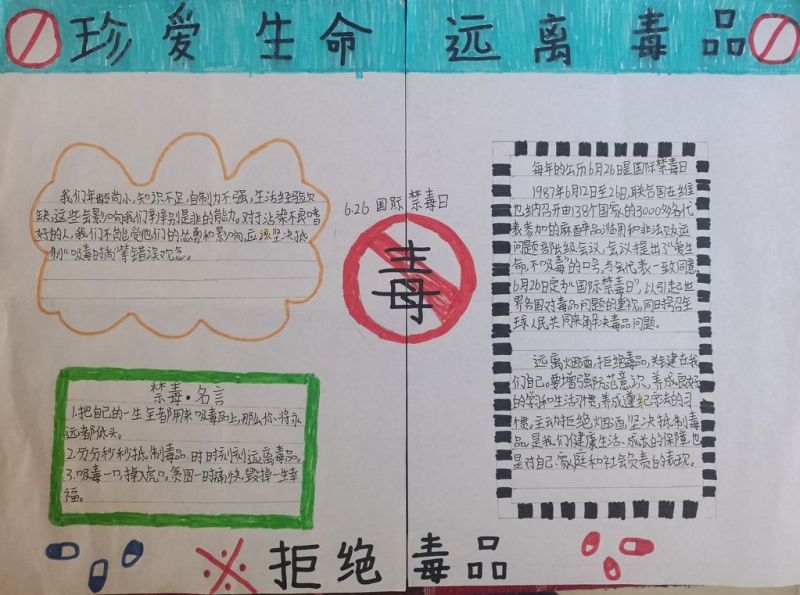 珍爱生命 远离毒品
我们年龄尚小,知识不足,自制力不强,生活经验欠
缺,这些会影响我们辨别是非的能力。对于沾染不良嗜
好的人,我们不能受他们的怂恿和影响,应该坚决抵
制"吸毒时尚"等错误观念。
禁毒·名言
1.把自己的一生全都用来吸毒品上,那么你、将永
远都低头。
2.分分秒秒抵制毒品,时时刻刻远离毒品。
3.吸毒一口,掉入虎口。贪图一时痛快,毁掉一生幸
福。
6.26 国际禁毒日
毒
每年的公历6月26日是国际禁毒日
1987年6月12日至26日,联合国在维
也纳召开由138个国家的3000多名代
表参加的麻醉品滥用和非法贩运
问题部长级会议,会议提出了"爱生
命,不吸毒"的口号,与会代表一致同意
6月26日定为"国际禁毒日",以引起世
界各国对毒品问题的重视,同时号召全
球人民共同来解决毒品问题。
远离烟酒,拒绝毒品,关键在我
们自己,要增强防范意识,养成良好
的学习和生活习惯,养成遵纪守法的习
惯,主动拒绝烟酒,坚决抵制毒
品,是我们健康生活、成长的保障,也
是对自己、家庭和社会负责的表现。
※拒绝毒品